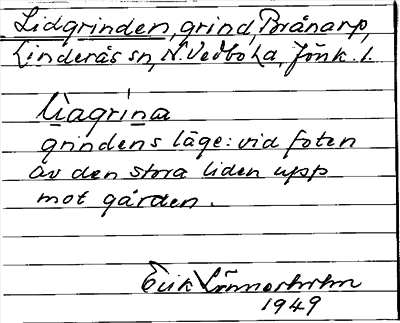 Lidgrinden, grind, Brånarp,
Linderås sn, N. Vedbo hd, Jönk. l.
li̵agrìna
grindens läge: vid foten
av den stora liden upp
mot gården.
Erik Linnerholm
1949